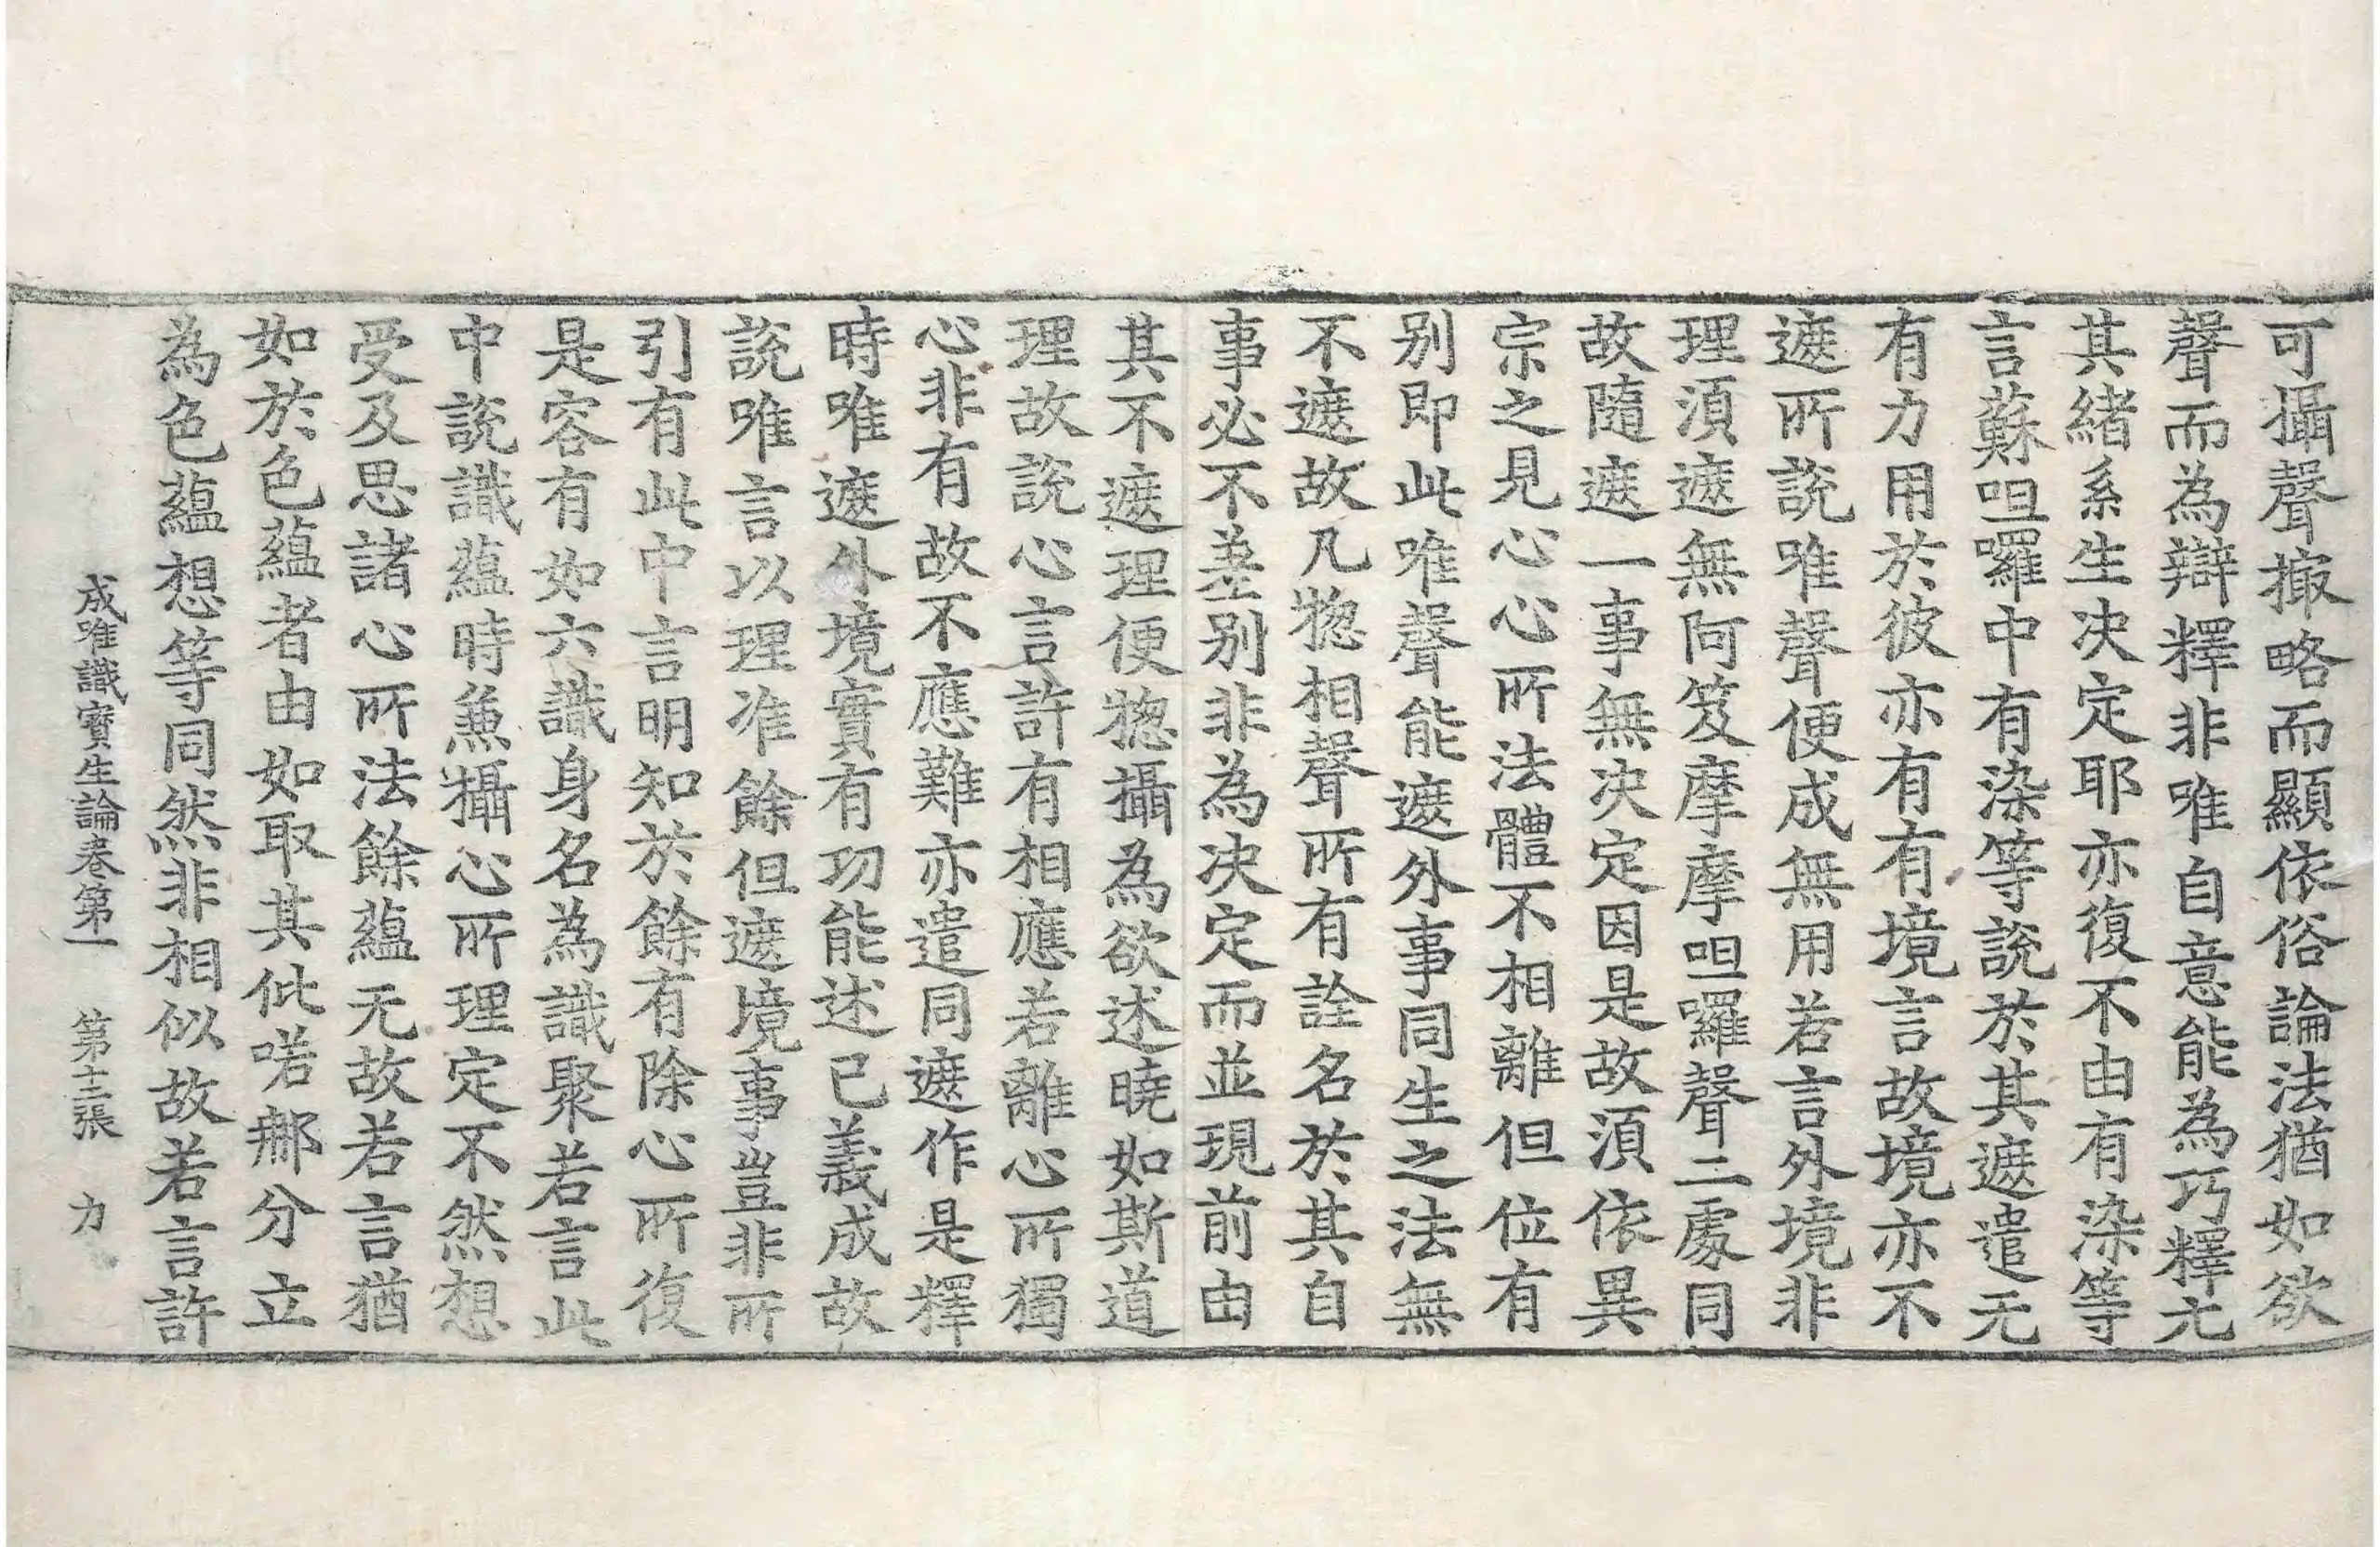 可攝聲撮略而顯依俗論法猶如欲
聲而為辯釋非唯自意能為巧釋元
其緒系生決定耶亦復不由有染等
言蘇呾囉中有染等說於其遮遣无
有力用於彼亦有有境言故境亦不
遮所說唯聲便成無用若言外境非
理須遮無阿笈摩摩呾囉聲二處同
故隨遮一事無決定因是故須依異
宗之見心心所法體不相離但位有
別即此唯聲能遮外事同生之法無
不遮故凡惣相聲所有詮名於其自
事必不差別非為決定而並現前由
其不遮理便惣攝為欲述曉如斯道
理故說心言許有相應若離心所獨
心非有故不應難亦遣同遮作是釋
時唯遮外境實有功能述已義成故
說唯言以理准餘但遮境事豈非所
引有此中言明知於餘有除心所復
是容有如六識身名為識聚若言此
中說識蘊時兼攝心所理定不然想
受及思諸心所法餘蘊无故若言猶
如於色蘊者由如取其佌喏郍分立
為色蘊想等同然非相似故若言許
成唯識寶生論卷第一　第十二張　力